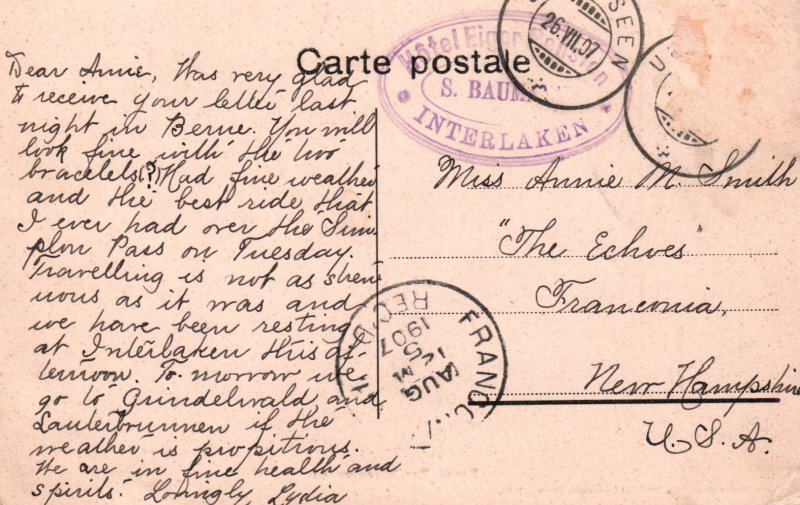 Carte postale
Hôtel Eiger
S. BAUM
INTERLAKEN
26.VII.07
SEEN
Dear Annie, Was very glad
to receive your letter last
night in Berne. You will
look fine with the two
bracelets(?) Had fine weather
and the best ride that
I ever had over the Sim
plon Pass on Tuesday.
Travelling is not as stren
uous as it was and
we have been resting
at Interlaken this af-
ternoon. To morrow we
go to Grindelwald and
Lauterbrunnen if the
weather is propitious.
We are in fine health and
spirits. Lovingly, Lydia
Miss Annie M. Smith
"The Echoes"
Franconia,
New Hampshire
U.S.A.
FRANCONIA
AUG
5
M
1907
REC'D